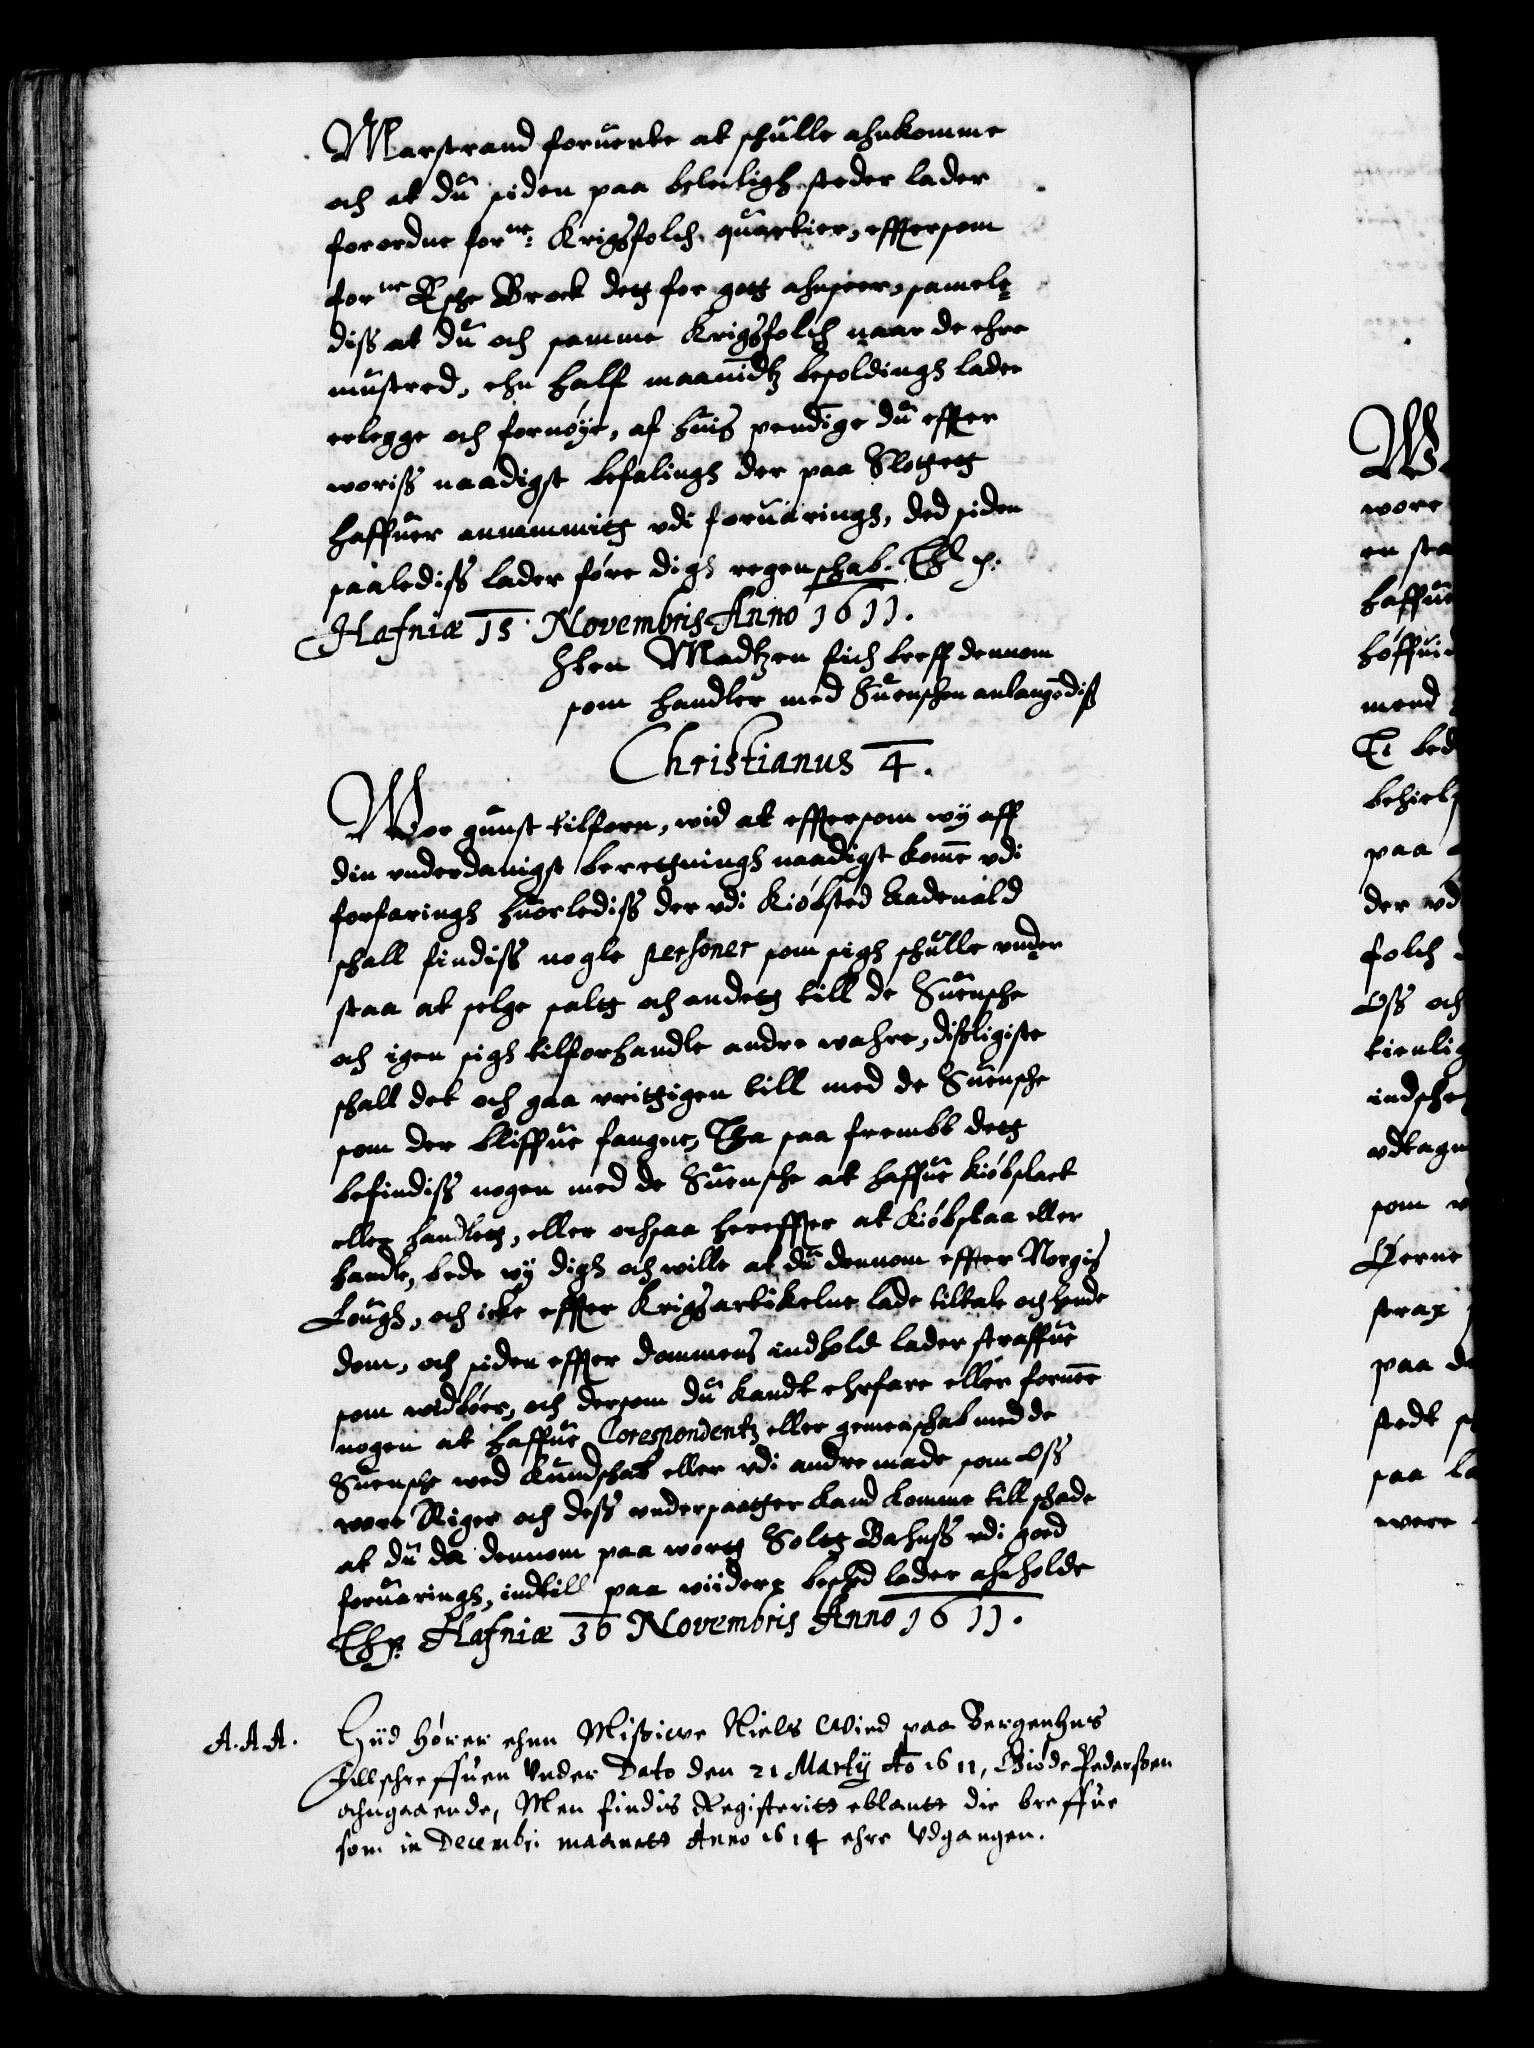 Marstrand foruente at schulle ahnkomme
och at du siden paa beleiligh steder lader
forordne for.ne: Krigsfolch quartier, effttersom
for.ne Esche Brock dett for gott ahnseer, samele
diss at du och samme Krigsfolch naar de ehre
mustred, ehn half maanidtz besoldingh lader
erlegge och fornøye, af huis pendige du effter
woriss naadigst befalingh der paa Slottett
haffuer annammitt vdi foruaringh, ded siden
saalediss lader føre digh regenschab. Th p.
Hafniæ 15 Novembris Anno 1611.
Sten Madtzen fich breff dennom
som handler med Suenschen anlangediss
Christianus 4.
Wor gunst tilforn, wid at effttersom wy aff
din vnderdanigst berettningh naadigst komme vdi
forfaringh huorlediss der vdi Kiøbsted Aadeuald
schall findiss nogle personer som sigh schulle vnder
staa at selge saltt och andett till de Suensche
och igen sigh tilforhandle andre wahre, disligiste
schall det och gaa vrittigen till med de Suensche
som der bliffue fangne, Tha saa frembt dett
befindiss nogen med de Suensche at haffue kiøbslaet
eller handlett, eller ochsaa hereffter at kiøbslaa eller
handle, bede wy digh och wille at du dennom effter Norgis
Lough, och icke effter Krigsartikelne lade tiltale och hende
dom, och siden effter dommens indhold lader straffue
som widbøer, och dersom du kandt ehrfare eller fornemme
nogen at haffue Corespondentz eller gemenschab med de
Suensche wed kundschab eller vdi andre made som Oss
wore Riger och dess vndersaatter kand komme till schade
at du da dennom paa wortt Slott Bahuss vdi goed
foruaringh, indtill paa wiider besched lader ahnholde
Thp. Hafniæ 16 Novembris Anno 1611.
A.A.A. Hiid hører ehnn Missiwe Niels Wind paa Bergenhus
Tillschreffuen Vnder Dato den 21 Martij Ao 1611, Giøde Pederssen
ahngaaende, Men findis Registeritt eblantt die breffue
som in Decembri maanett Anno 1614 ehre Vdgangen.